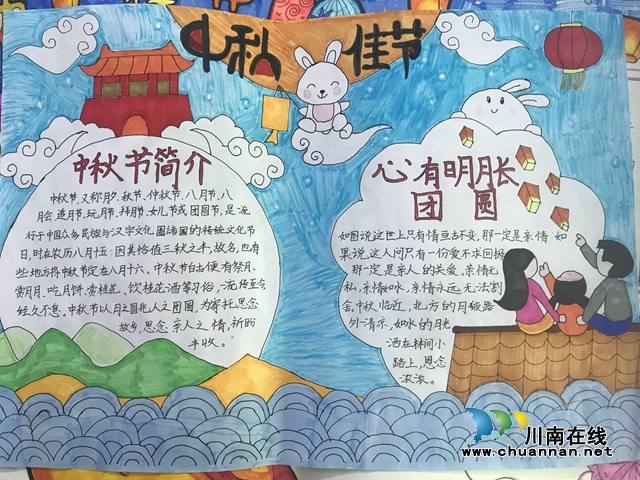 中秋 佳节
中秋节简介
中秋节,又称月夕、秋节、仲秋节、八月节、八
月会、追月节、玩月节、拜月节、女儿节或团圆节,是流
行于中国众多民族与汉字文化圈诸国的传统文化节
日,时在农历八月十五;因其恰值三秋之半,故名,也有
些地方将中秋节定在八月十六。中秋节自古便有祭月、
赏月、吃月饼、赏桂花、饮桂花酒等习俗,流传至今
经久不息。中秋节以月之圆兆人之团圆,为寄托思念
故乡,思念亲人之情,祈盼
丰收。
心有明月长
团圆
如图说这世上只有情亘古不变,那一定是亲情;如
果说,这人间只有一份爱不求回报
那一定是亲人的关爱。亲情无
私,亲情如水,亲情永远无法割
舍。中秋临近,北方的月夜
外清亮,如水的月光
洒在林间小
路上,思念
浓浓。
川南在线
www.chuannan.net